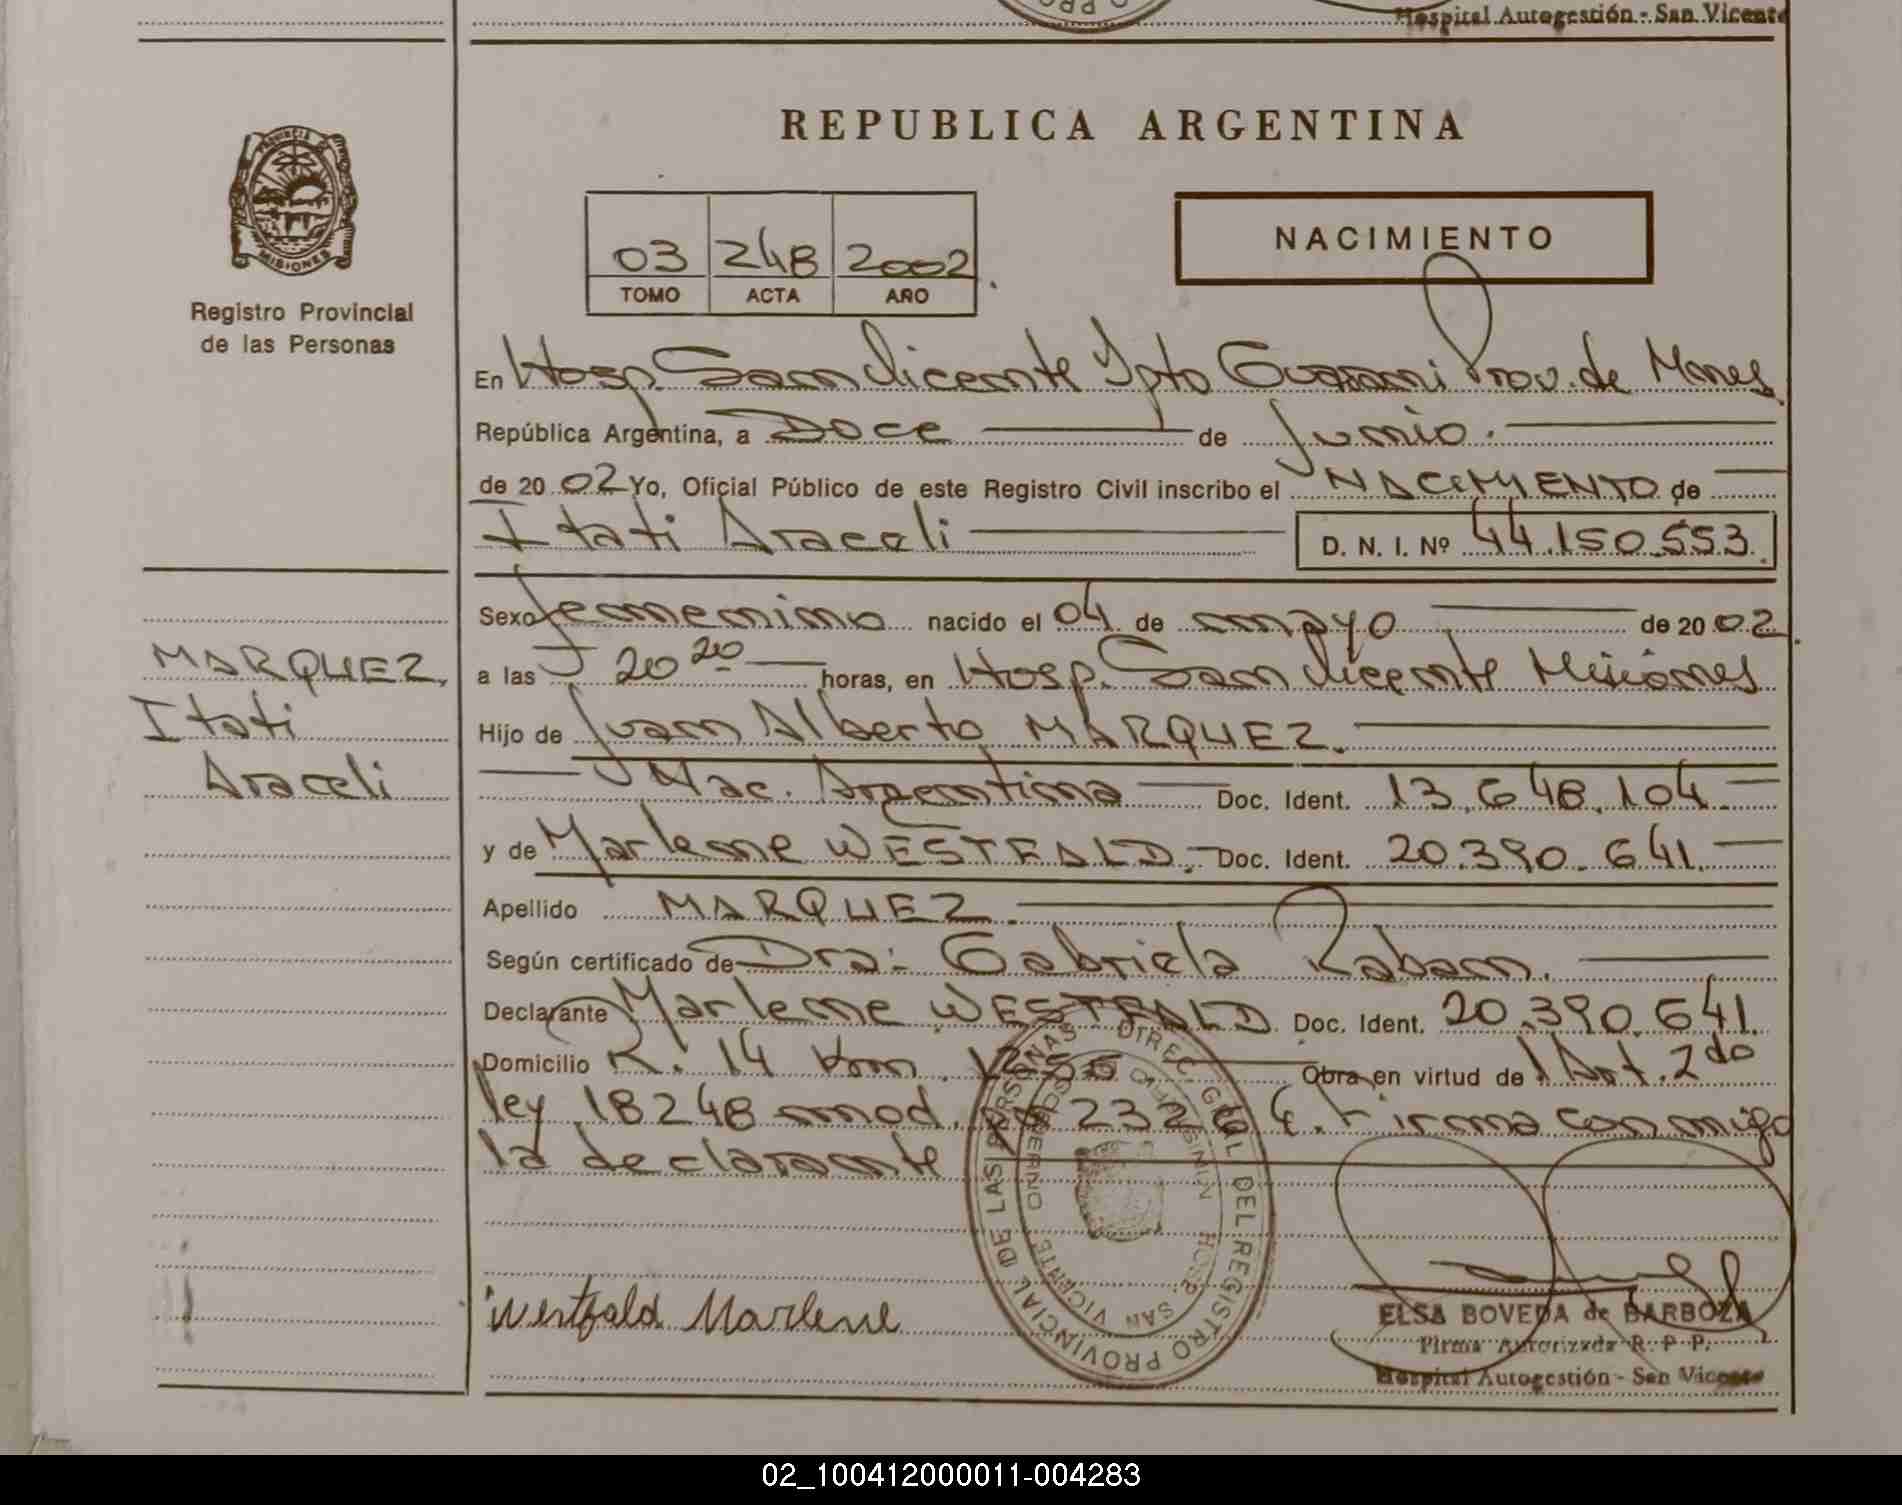 Hospital Autogestión - San Vicente
REPUBLICA ARGENTINA
PROVINCIA DE
MISIONES
Registro Provincial
de las Personas
03 248 2002
TOMO ACTA AÑO
NACIMIENTO
En Hosp. San Vicente Dpto Guarani Prov. de Mnes
República Argentina, a Doce de Junio.
de 20 02 Yo, Oficial Público de este Registro Civil inscribo el NACIMIENTO de
Itati Araceli D. N. I. Nº 44.150.553
Sexo femenino nacido el 04 de mayo de 20 02
MARQUEZ,
Itati
Araceli
a las 20 20 horas, en Hosp. San Vicente Misiones
Hijo de Juan Alberto MARQUEZ.
Nac. Argentina Doc. Ident. 13.648.104
y de Marlene WESTFALD. Doc. Ident. 20.390.641
Apellido MARQUEZ.
Según certificado de Dra: Gabriela Raban.
Declarante Marlene WESTFALD Doc. Ident. 20.390.641.
Domicilio R. 14 Km. 1255 Obra en virtud de Art. 2do
ley 18248 mod. 23264. Firma conmigo
la declarante
DIREC. GRAL DEL REGISTRO PROVINCIAL DE LAS PERSONAS
GOBIERNO
HOSP. SAN VICENTE
Westfald Marlene
ELSA BOVEDA de BARBOZA
Firma Autorizada R. P. P.
Hospital Autogestión - San Vicente
02_100412000011-004283